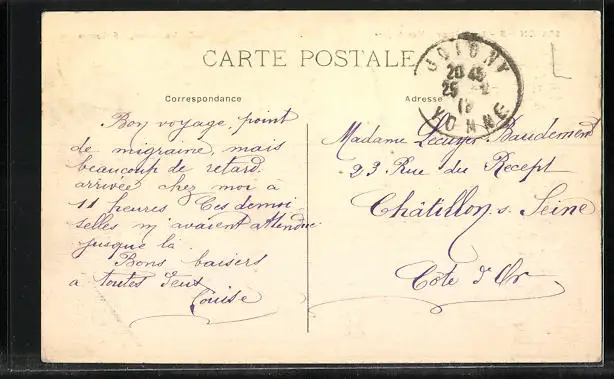 CARTE POSTALE
Correspondance
Adresse
JOIGNY
20 45
25
YONNE
Bon voyage, point
de migraine, mais
beaucoup de retard.
arrivée chez moi à
11 heures Ces demoi
selles m'avaient attendue
jusque là.
Bons baisers
a toutes deux
Louise
Madame Baudement
23 Rue du Recept
Châtillon s. Seine
Côte d'Or